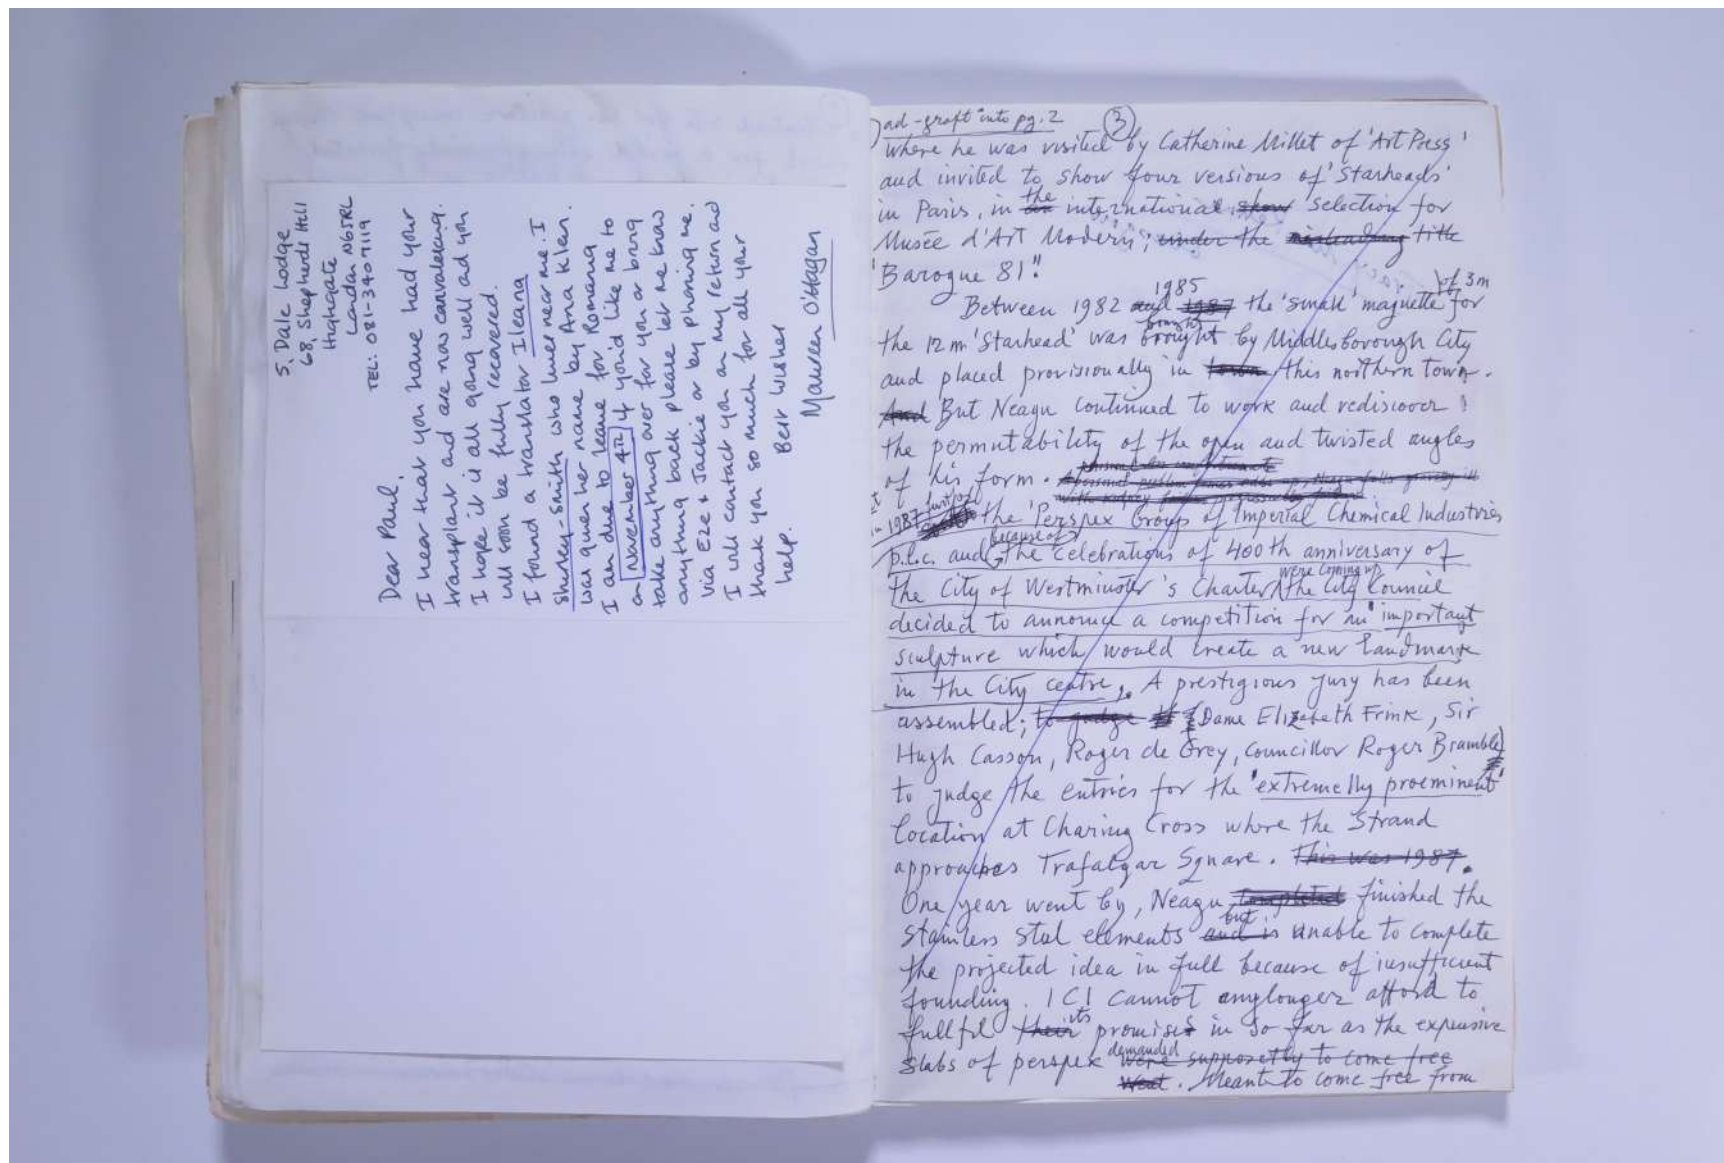 5, Dale Lodge
68, Shepherds Hill
Highgate
London N65RL
TEL: 081-340 7119
Dear Paul,
I hear that you have had your
transplant and are now convalescing.
I hope it is all going well and you
will soon be fully recovered.
I found a translator Ileana
Shirley-Smith who lives near me. I
was given her name by Ana Klen.
I am due to leave for Romania
on November 4th if you'd like me to
take anything over for you or bring
anything back please let me know
via Eze & Jackie or by phoning me.
I will contact you on my return and
thank you so much for all your
help.
Best wishes
Maureen O'Hagan
ad-graft into pg. 2 3
where he was visited by Catherine Millet of 'Art Press'
and invited to show four versions of 'Starheads'
in Paris, in the international show selection for
Musée d'Art Modern; under the misleading title
"Baroque 81".
Between 1982 and 1987 1985 the 'small' maquette of 3m for
the 12 m 'Starhead' was brought bought by Middlesborough City
and placed provisionally in town this northern town.
And But Neagu continued to work and rediscover
the permutability of the open and twisted angles
of his form.
in 1987 the 'Perspex Group of Imperial Chemical Industries
p.l.c. and because of the celebrations of 400th anniversary of
the City of Westminster's Charter were coming up the City Council
decided to announce a competition for an "important
sculpture which would create a new landmark
in the City centre. A prestigious jury has been
assembled; to judge (Dame Elizabeth Frink, Sir
Hugh Casson, Roger de Grey, Councillor Roger Bramble)
to judge the entries for the 'extremelly proeminent'
location at Charing Cross where the Strand
approaches Trafalgar Square. This was 1987.
One year went by, Neagu completed finished the
stainless steel elements and is but unable to complete
the projected idea in full because of insufficient
founding. ICI cannot anylonger afford to
fullfil their its promises in so far as the expensive
slabs of perspex demanded were supposetly to come free
went. Meant to come free from